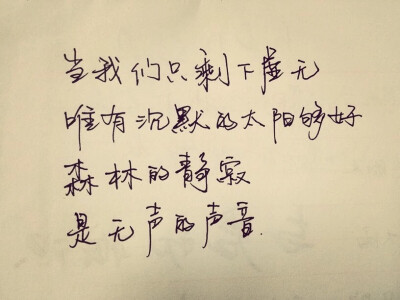 当我们只剩下虚无
唯有沉默的太阳够好
森林的静寂
是无声的声音.